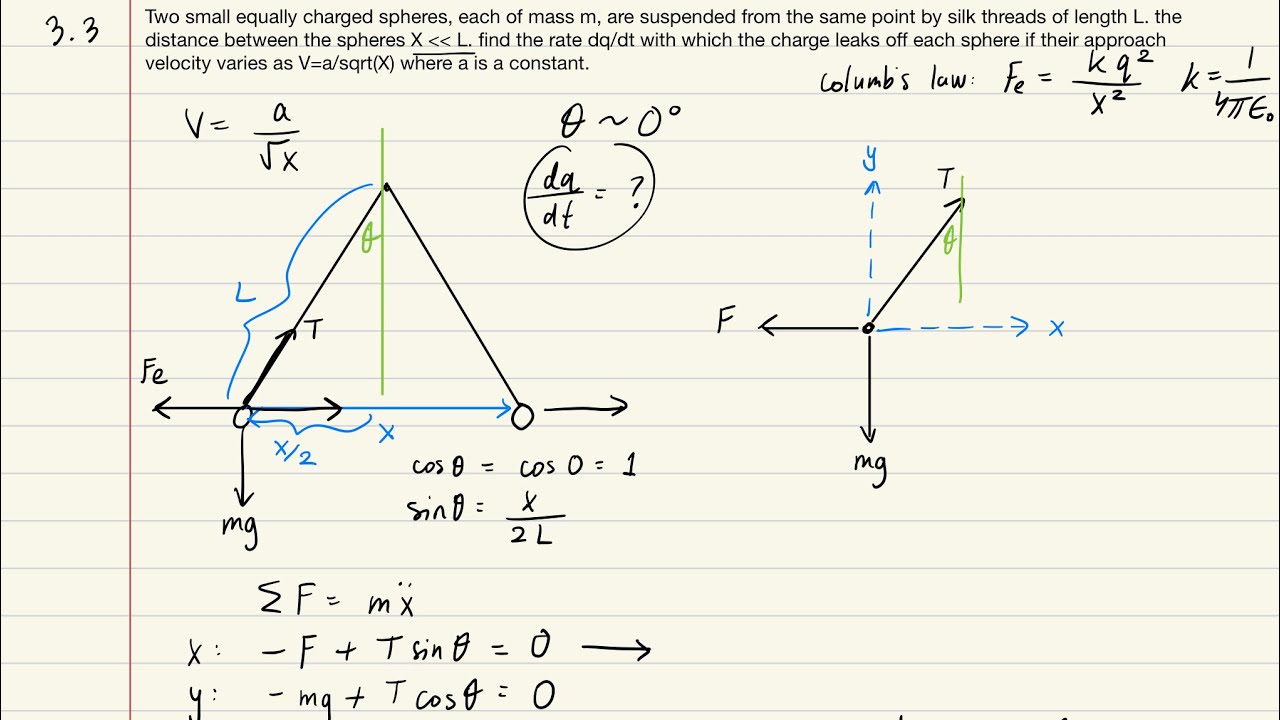 3.3
Two small equally charged spheres, each of mass m, are suspended from the same point by silk threads of length L. the
distance between the spheres X << L. find the rate dq/dt with which the charge leaks off each sphere if their approach
velocity varies as V=a/sqrt(X) where a is a constant.
columb's law: Fe = kq²/x² k = 1/4πε₀
V = a/√x
θ ~ 0°
dq/dt = ?
y
T
θ
F
x
mg
θ
L
T
Fe
x/2
x
mg
cosθ = cos 0 = 1
sinθ = x/2L
ΣF = mẍ
x: - F + T sinθ = 0 →
y: - mg + T cosθ = 0